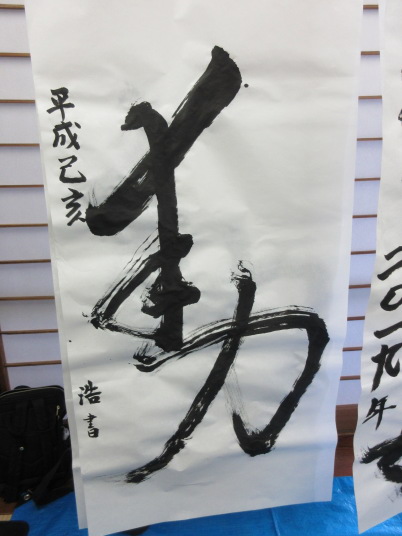 動
平成己亥
浩書
二〇一九年